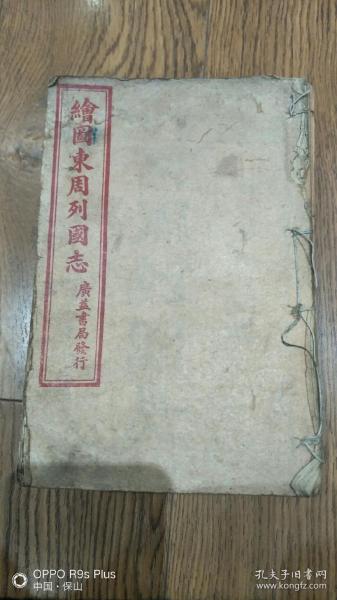 繪圖東周列國志
廣益書局發行
OPPO R9s Plus
中国·保山
孔夫子旧书网
www.kongfz.com